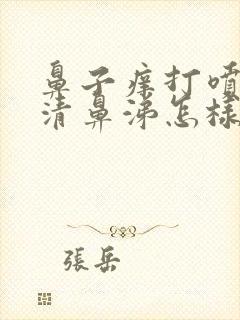 鼻子痒打噴
清鼻涕怎樣
張岳